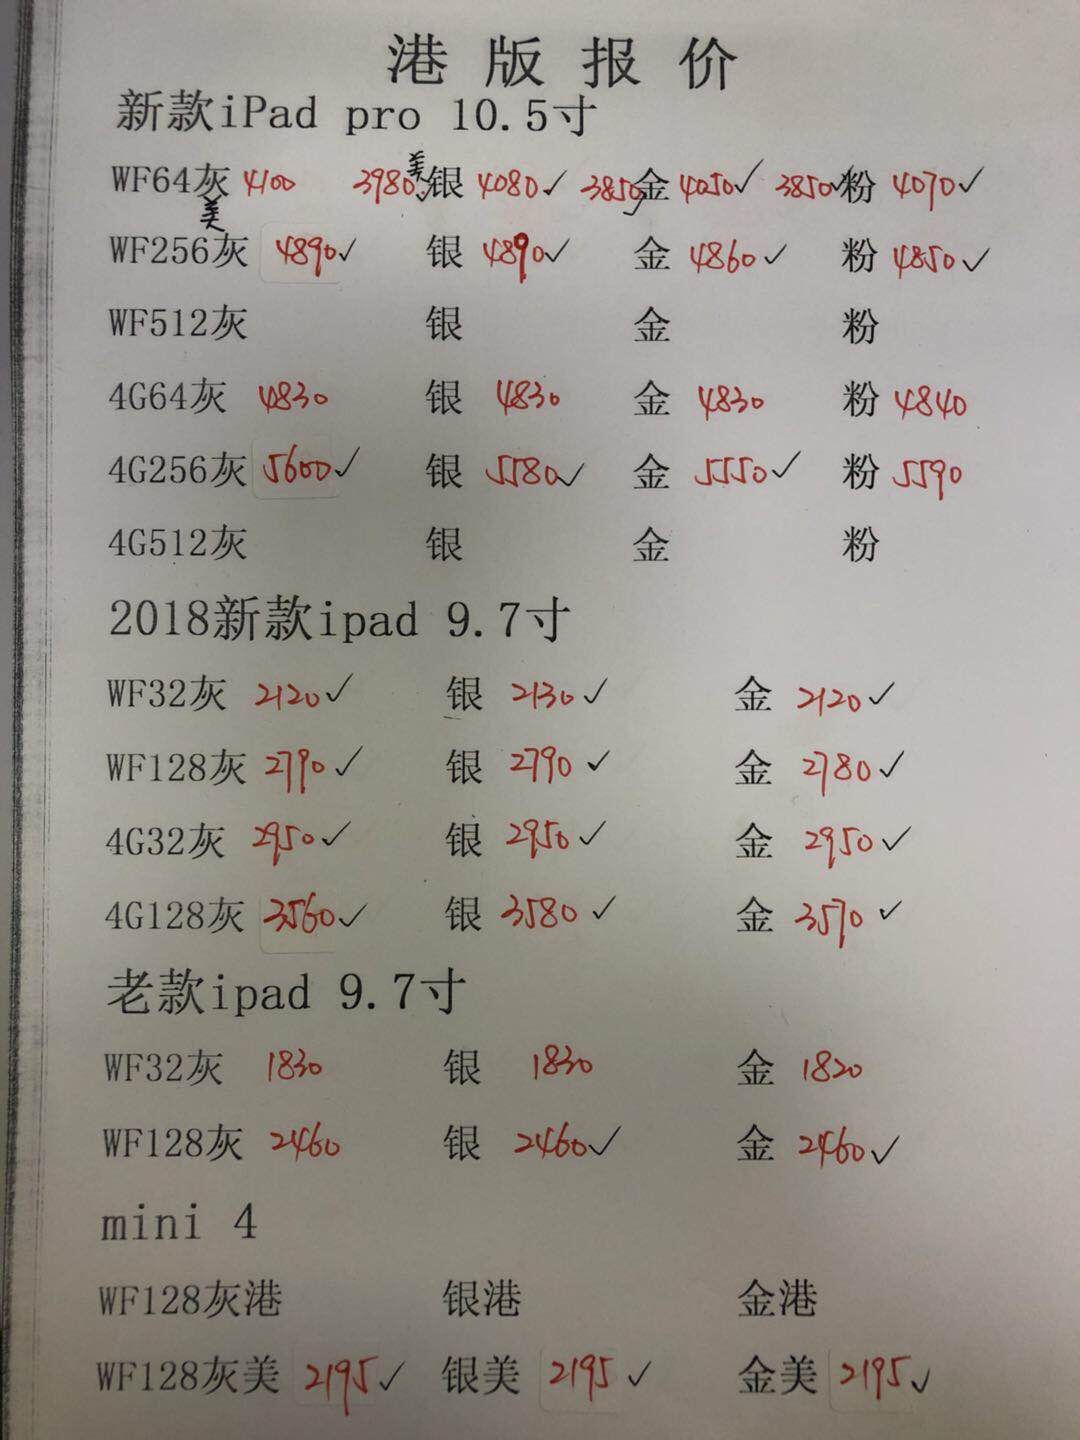 港版报价
新款iPad pro 10.5寸
WF64灰 4100 3980美✓ 银 4080✓ 3850✓ 金 4050✓ 3850✓ 粉 4070✓
美
WF256灰 4890✓ 银 4890✓ 金 4860✓ 粉 4850✓
WF512灰 银 金 粉
4G64灰 4830 银 4830 金 4830 粉 4840
4G256灰 5600✓ 银 5580✓ 金 5550✓ 粉 5590
4G512灰 银 金 粉
2018新款ipad 9.7寸
WF32灰 2120✓ 银 2130✓ 金 2120✓
WF128灰 2790✓ 银 2790✓ 金 2780✓
4G32灰 2950✓ 银 2950✓ 金 2950✓
4G128灰 3560✓ 银 3580✓ 金 3570✓
老款ipad 9.7寸
WF32灰 1830 银 1830 金 1820
WF128灰 2460 银 2460✓ 金 2460✓
mini 4
WF128灰港 银港 金港
WF128灰美 2195✓ 银美 2195✓ 金美 2195✓